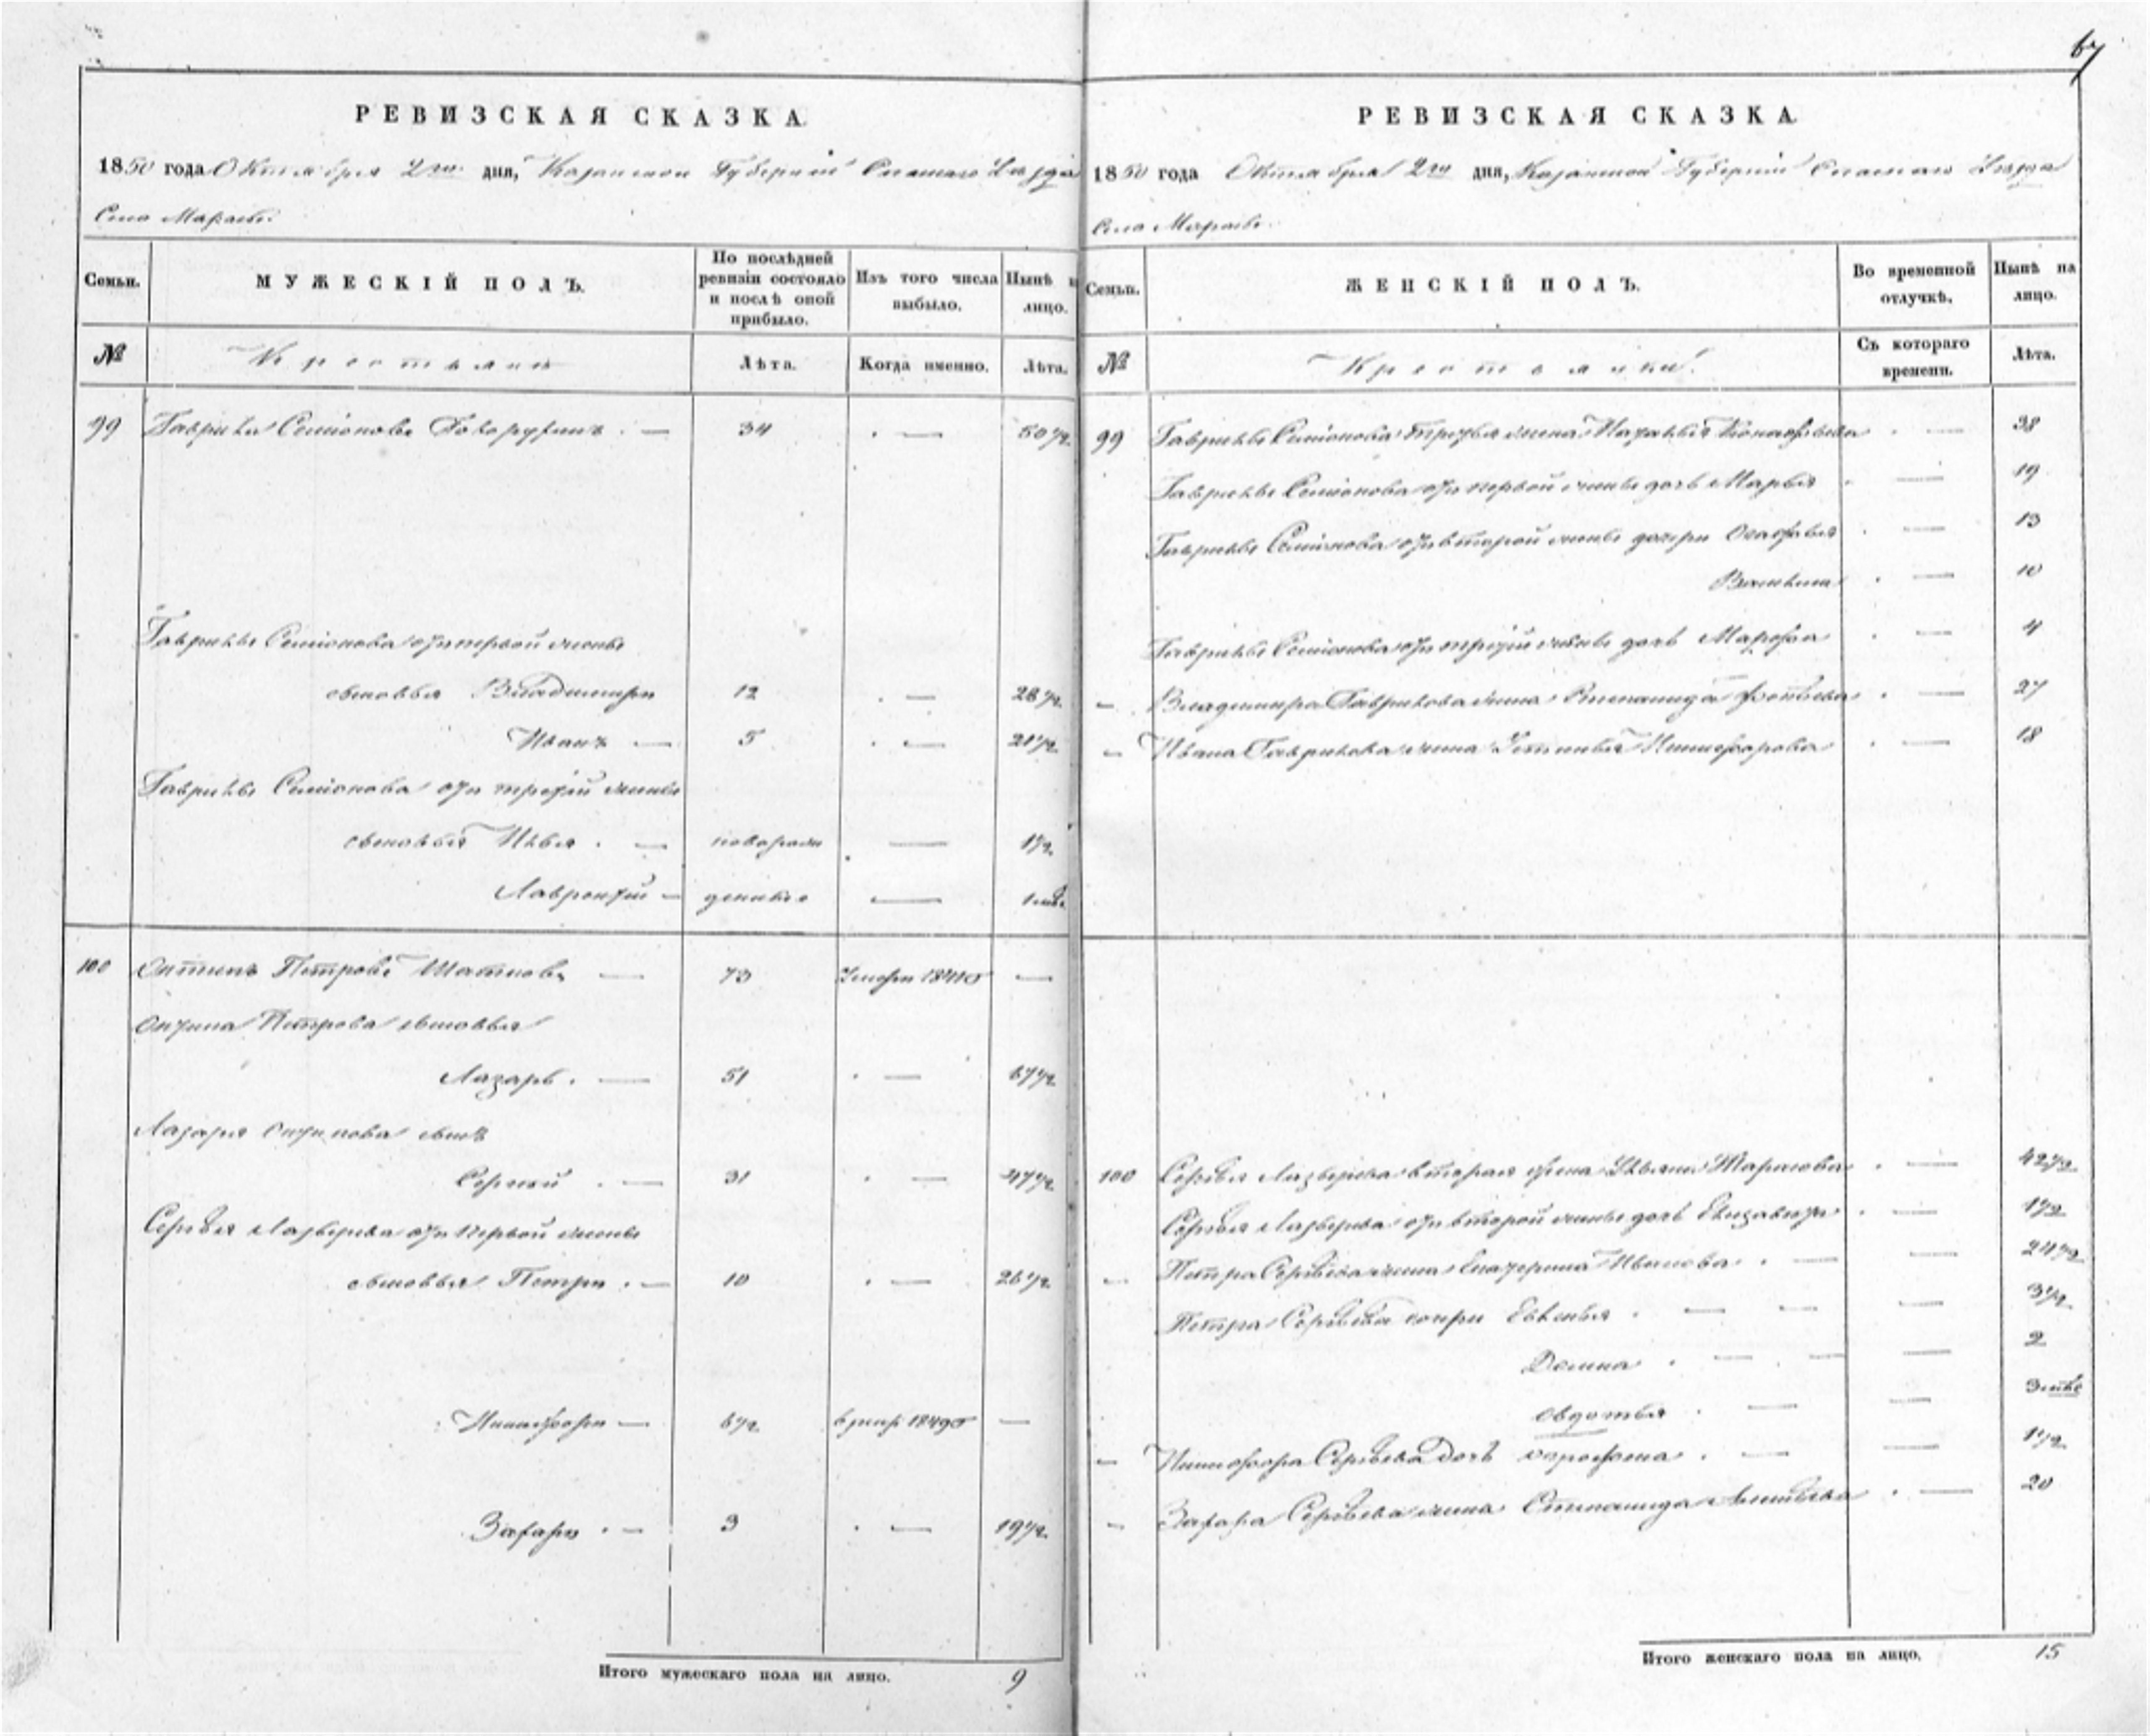 67
РЕВИЗСКАЯ СКАЗКА.
1850 года Октября 2го дня, Казанской Губернии Спаскаго Уезда
Села Марасы.
Семьи.
МУЖЕСКІЙ ПОЛЪ.
По послѣдней ревизіи состояло и послѣ оной прибыло.
Изъ того числа выбыло.
Нынѣ н лицо.
№
Крестьяне
Лѣта.
Когда именно.
Лѣта.
99 Гаврила Семіоновъ — 34 — 50 1/2
Гаврилы Семіонова отъ первой жены
сыновья Владимиръ 12 — 28 1/2
Иванъ — 5 — 21 1/2
Гаврилы Семіонова отъ третьей жены
сыновья Илья — новорож — 1 1/2
Лаврентій — денные — 1 мѣс
100 Антипъ Петровъ — 73 Умеръ 184 —
Антипа Петрова сыновья
Лазарь — 51 — 67 1/2
Лазаря Антипова сынъ
Сергей — 31 — 47 1/2
Сергѣя Лазырева отъ первой жены
сыновья Петръ — 10 — 26 1/2
Никифоръ — 6 1/2 1849 —
Захаръ — 3 — 19 1/2
Итого мужескаго пола на лицо. 9
РЕВИЗСКАЯ СКАЗКА.
1850 года Октября 2го дня, Казанской Губерніи Спаскаго Уезда
Села Марасы.
Семьи.
ЖЕНСКІЙ ПОЛЪ.
Во временной отлучкѣ.
Нынѣ на лицо.
№
Крестьянки
Съ котораго времени.
Лѣта.
99 Гаврилы Семіонова третья жена Наталья — 38
Гаврилы Семіонова отъ первой жены дочь Марья — 19
Гаврилы Семіонова отъ второй жены дочери — 13
— 10
Гаврилы Семіонова отъ третьей жены дочь Марфа — 4
Владимира Гаврилова жена Степанида — 27
Ивана Гаврилова жена Устинья Никифорова — 18
100 Сергѣя Лазырева вторая жена Ульяна — 42 1/2
Сергѣя Лазырева отъ второй жены дочь Елизавета — 1 1/2
Петра Сергѣева жена Екатерина Иванова — 24 1/2
Петра Сергѣева дочери Евгенья — 3 1/2
Домна — 2
Авдотья — 3 мѣс
Никифора Сергѣева дочь — 1 1/2
Захара Сергѣева жена Степанида — 20
Итого женскаго пола на лицо. 15